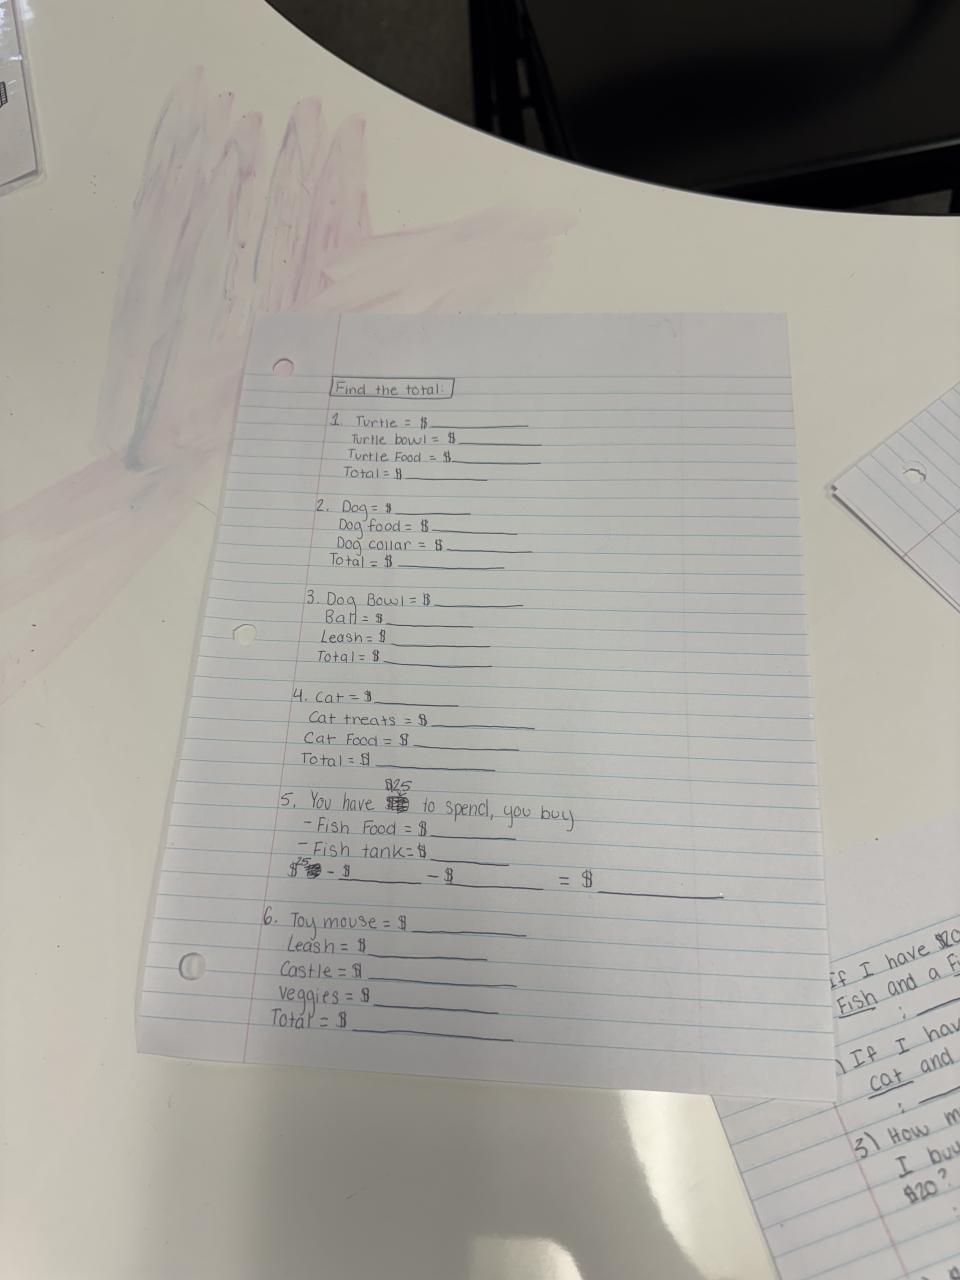 Find the total:
1. Turtle = $
Turtle bowl = $
Turtle Food = $
Total = $
2. Dog = $
Dog food = $
Dog collar = $
Total = $
3. Dog Bowl = $
Ball = $
Leash = $
Total = $
4. Cat = $
Cat treats = $
Cat Food = $
Total = $
$25
5. You have to spend, you buy
- Fish Food = $
- Fish tank = $
$25 - $ - $ = $
6. Toy mouse = $
Leash = $
Castle = $
Veggies = $
Total = $
If I have $20
Fish and a Fi
;
) If I hav
cat and
;
3) How m
I buy
$20?